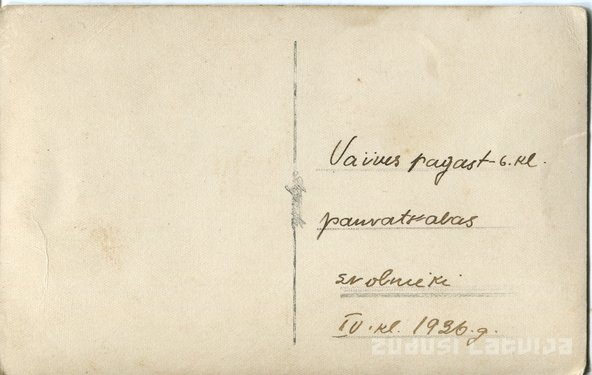 Vaives pagast 6. kl.
pamatskolas
skolnieki
IV. kl. 1936. g.
ZUDUSI LATVIJA